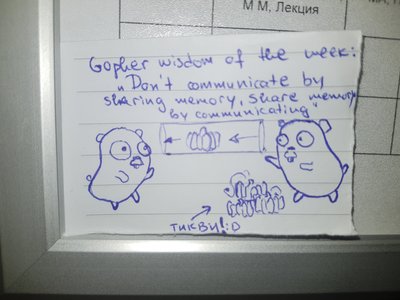 М М, Лекция
Gopher wisdom of the week:
„Don't communicate by
sharing memory, share memory
by communicating"
тикви!:D